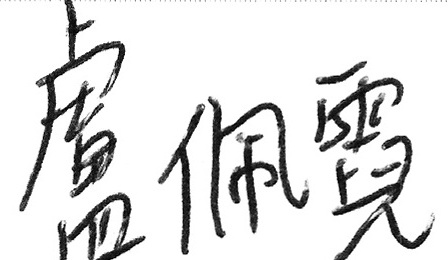 盧佩霓